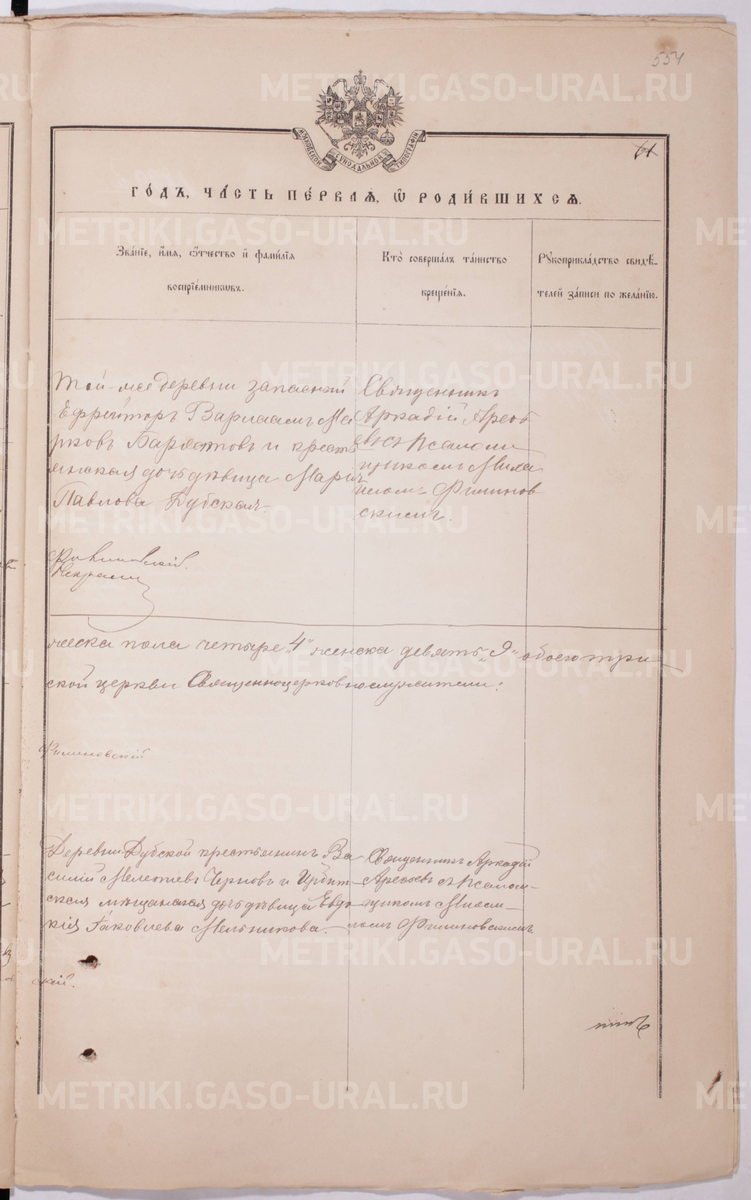 554
61
ГОДЪ, ЧАСТЬ ПЕРВАЯ, Ѡ РОДИВШИХСЯ.
Званіе, имя, отчество и фамилія
воспріемниковъ.
Кто совершалъ таинство
крещенія.
Рукоприкладство свидѣ-
телей записи по желанію.
Той-же деревни запасной
Ефрейторъ Варлаамъ Ма
рковъ и крестъ
янская дочь дѣвица Марія
Павлова Дубская.
Священникъ
Аркадій Арефь
евъ съ псалом
щикомъ Миха
иломъ Филинов
скимъ.
ческа пола четыре „4“ женска девять „9“ обоего три
ской церкви Священноцерковнослужители:
Филиновскій
Деревни Дубской крестьянинъ Ва
силій Мелетіевъ Черновъ и Ирбит
ская мѣщанская дочь дѣвица Евдо
кія Іаковлева Мельникова.
Священникъ Аркадій
Арефьевъ съ псалом-
щикомъ Михаи-
ломъ Филиновскимъ
скій.
METRIKI.GASO-URAL.RU